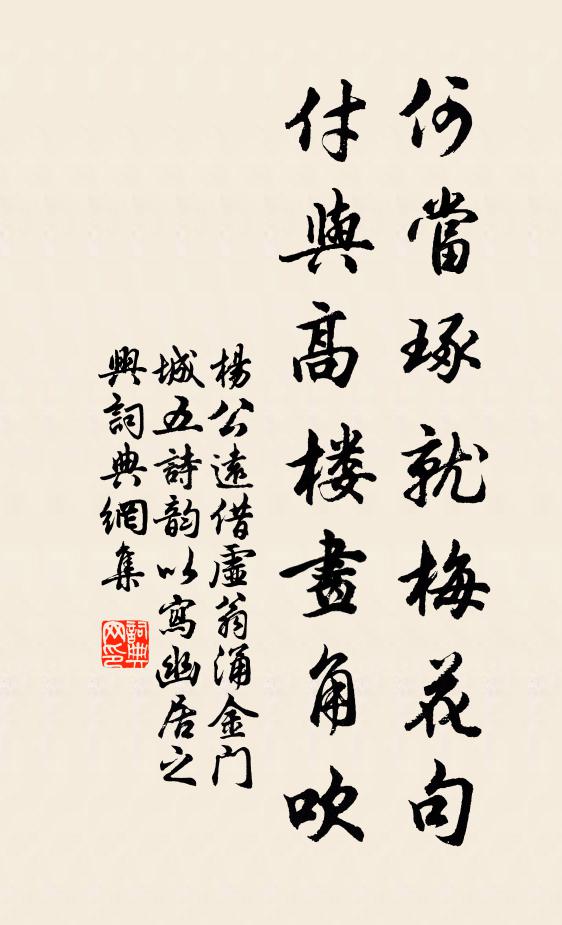 何當琢就梅花句
付與高樓畫角吹
楊公遠借虛翁涌金門
城五詩韵以寫幽居之
興詞典網集
詞典
网印